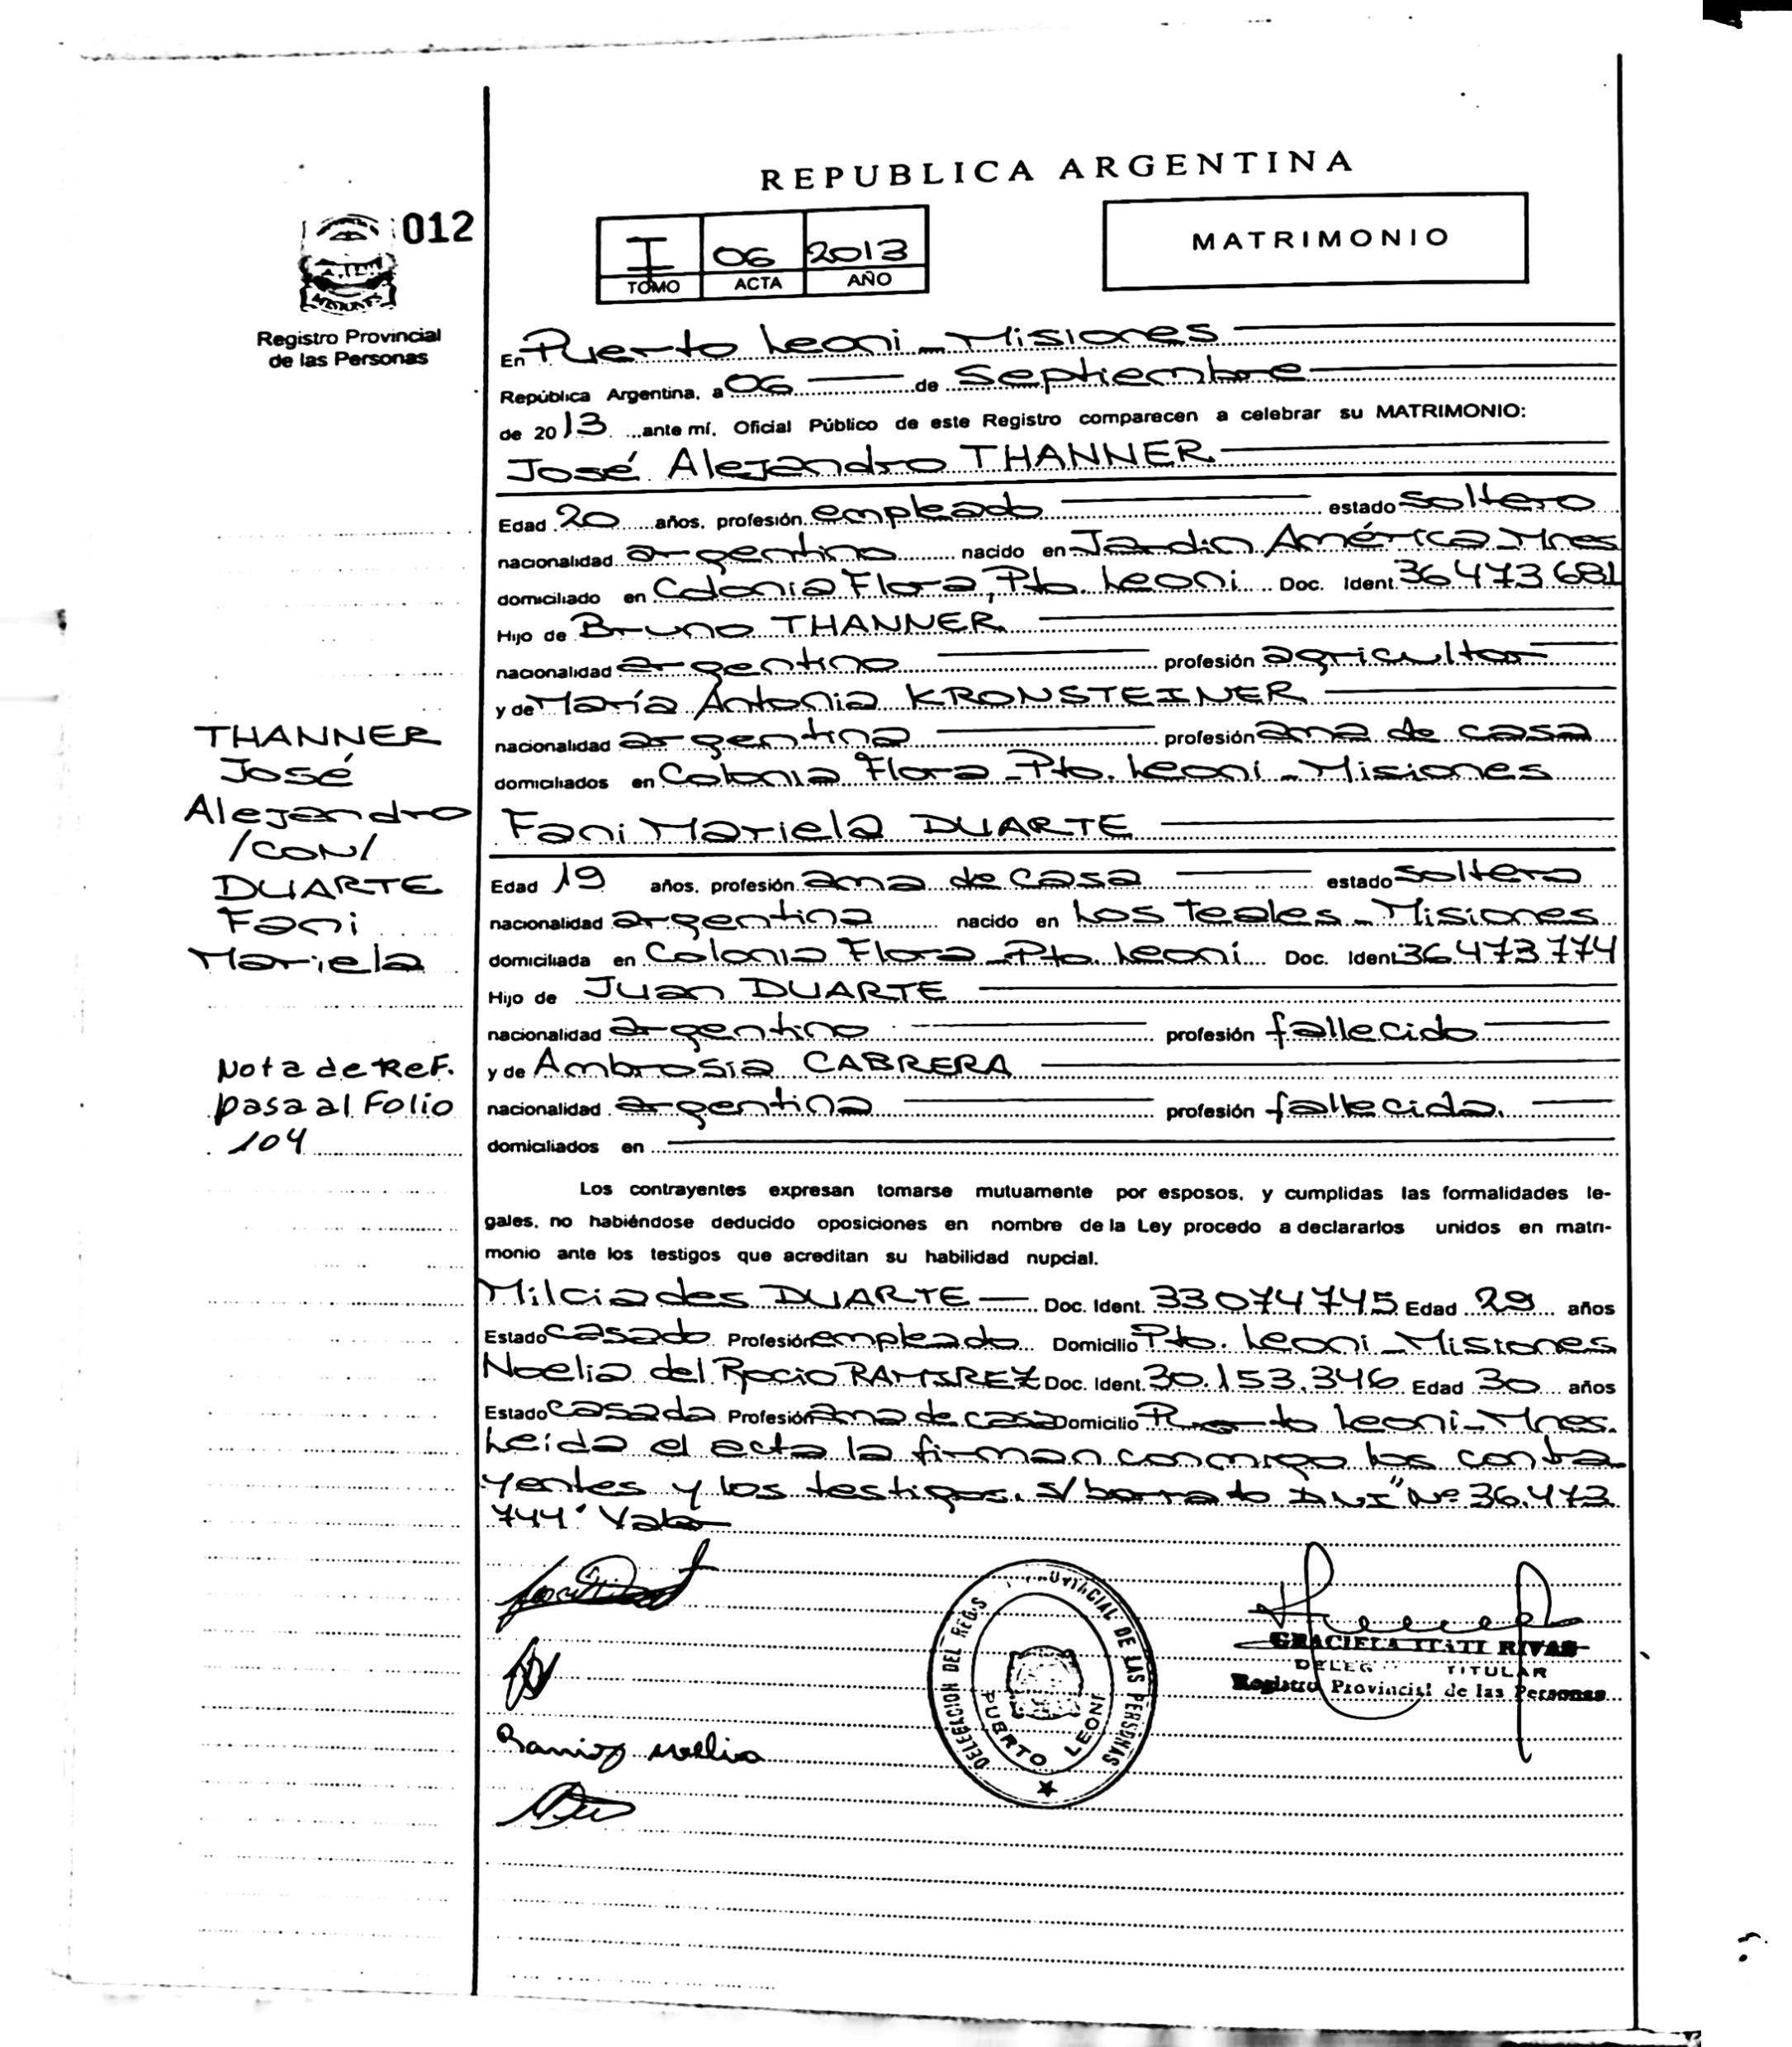 REPUBLICA ARGENTINA
012
I 06 2013
TOMO ACTA AÑO
MATRIMONIO
Registro Provincial
de las Personas
En Puerto Leoni - Misiones
República Argentina, a 06 de Septiembre
de 2013 ante mí, Oficial Público de este Registro comparecen a celebrar su MATRIMONIO:
José Alejandro THANNER
Edad 20 años, profesión empleado estado soltero
nacionalidad argentino nacido en Jardin América - Mnes
domiciliado en Colonia Flora, Pto. Leoni Doc. Ident. 36473681
Hijo de Bruno THANNER
nacionalidad argentino profesión agricultor
y de María Antonia KRONSTEINER
nacionalidad argentina profesión ama de casa
domiciliados en Colonia Flora - Pto. Leoni - Misiones
Fani Mariela DUARTE
Edad 19 años, profesión ama de casa estado soltera
nacionalidad argentina nacido en Los Teales - Misiones
domiciliada en Colonia Flora - Pto. Leoni Doc. Ident 36473774
Hijo de Juan DUARTE
nacionalidad argentino profesión fallecido
y de Ambrosia CABRERA
nacionalidad argentina profesión fallecida.
domiciliados en
THANNER
José
Alejandro
/CON/
DUARTE
Fani
Mariela
Nota de Ref.
pasa al Folio
104
Los contrayentes expresan tomarse mutuamente por esposos, y cumplidas las formalidades le-
gales, no habiéndose deducido oposiciones en nombre de la Ley procedo a declararlos unidos en matri-
monio ante los testigos que acreditan su habilidad nupcial.
Milciades DUARTE Doc. Ident. 33074745 Edad 29 años
Estado casado Profesión empleado Domicilio Pto. Leoni - Misiones
Noelia del Rocio RAMIREZ Doc. Ident. 30.153.346 Edad 30 años
Estado casada Profesión ama de casa Domicilio Puerto Leoni - Mnes.
Leída el acta la firman conmigo los contra
yentes y los testigos. s/borrato DNI "Nº 36.473
744" Vale
Ramirez Noelia
DELEGACION DEL REGIS PROVINCIAL DE LAS PERSONAS
PUERTO LEONI
GRACIELA ITATI RIVAS
DELEG TITULAR
Registro Provincial de las Personas